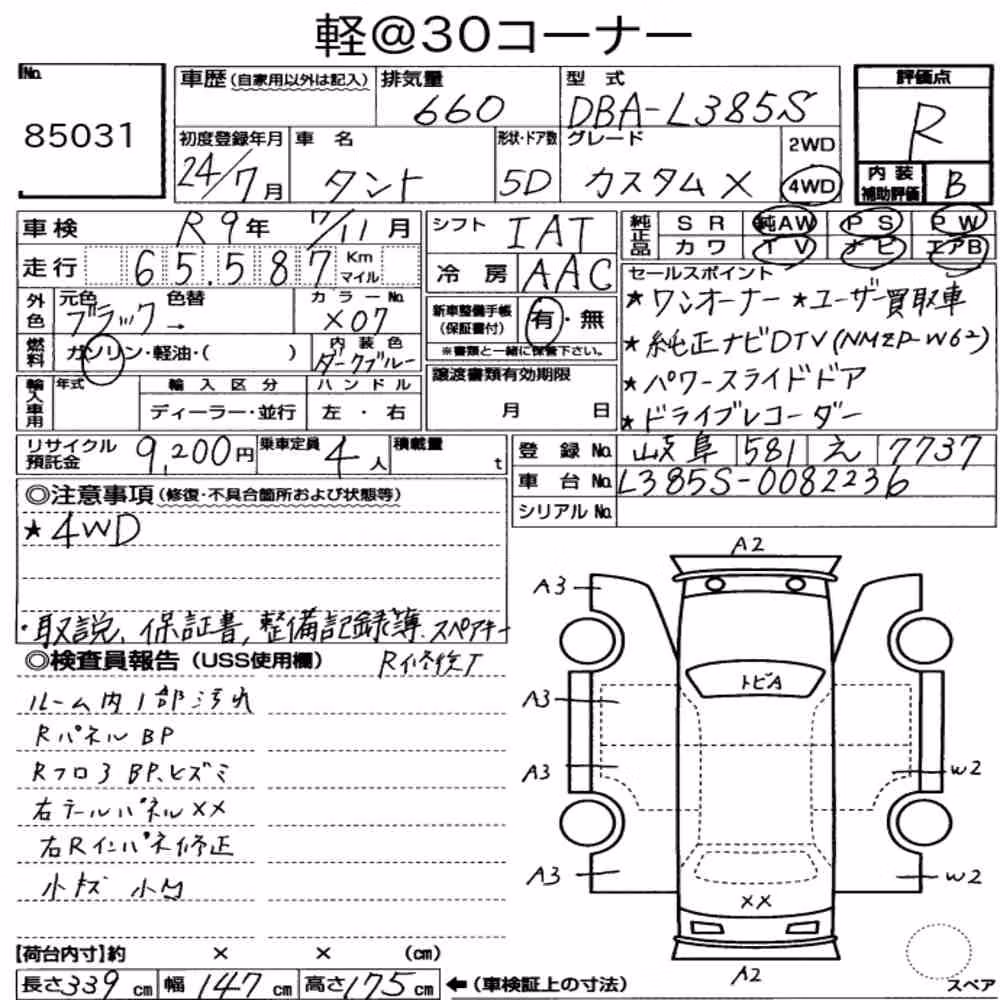 軽@30コーナー
No.
85031
車歴(自家用以外は記入)
排気量
660
型 式
DBA-L385S
評価点
R
初度登録年月
24/7月
車 名
タント
形状・ドア数
5D
グレード
カスタムX
2WD
4WD
内装補助評価
B
車検
R9年 7/11月
シフト
IAT
純正品
SR 純AW PS PW
カワ TV ナビ エアB
走行
65.587
Km
マイル
冷房
AAC
セールスポイント
★ワンオーナー ★ユーザー買取車
★純正ナビDTV(NMZP-W62)
★パワースライドドア
★ドライブレコーダー
外色
元色
ブラック
色替
→
カラーNo.
X07
新車整備手帳
(保証書付)
有・無
※書類と一緒に保管下さい。
燃料
ガソリン・軽油・( )
内装色
ダークブルー
譲渡書類有効期限
月 日
輸入車用
年式
輸入区分
ディーラー・並行
ハンドル
左・右
リサイクル預託金
9,200円
乗車定員
4人
積載量
t
登録No.
岐阜 581 え 7737
車台No.
L385S-0082236
シリアルNo.
◎注意事項(修復・不具合箇所および状態等)
★4WD
・取説、保証書、整備記録簿、スペアキー
◎検査員報告(USS使用欄)
R修復丁
ルーム内1部汚れ
RパネルBP
Rフロ3 BP、ヒズミ
右テールパネルXX
右Rインパネ修正
小キズ 小凹
A2
A3
トビA
A3
A3
W2
A3
W2
XX
A2
スペア
【荷台内寸】約 × × (cm)
長さ339cm 幅147cm 高さ175cm ←(車検証上の寸法)